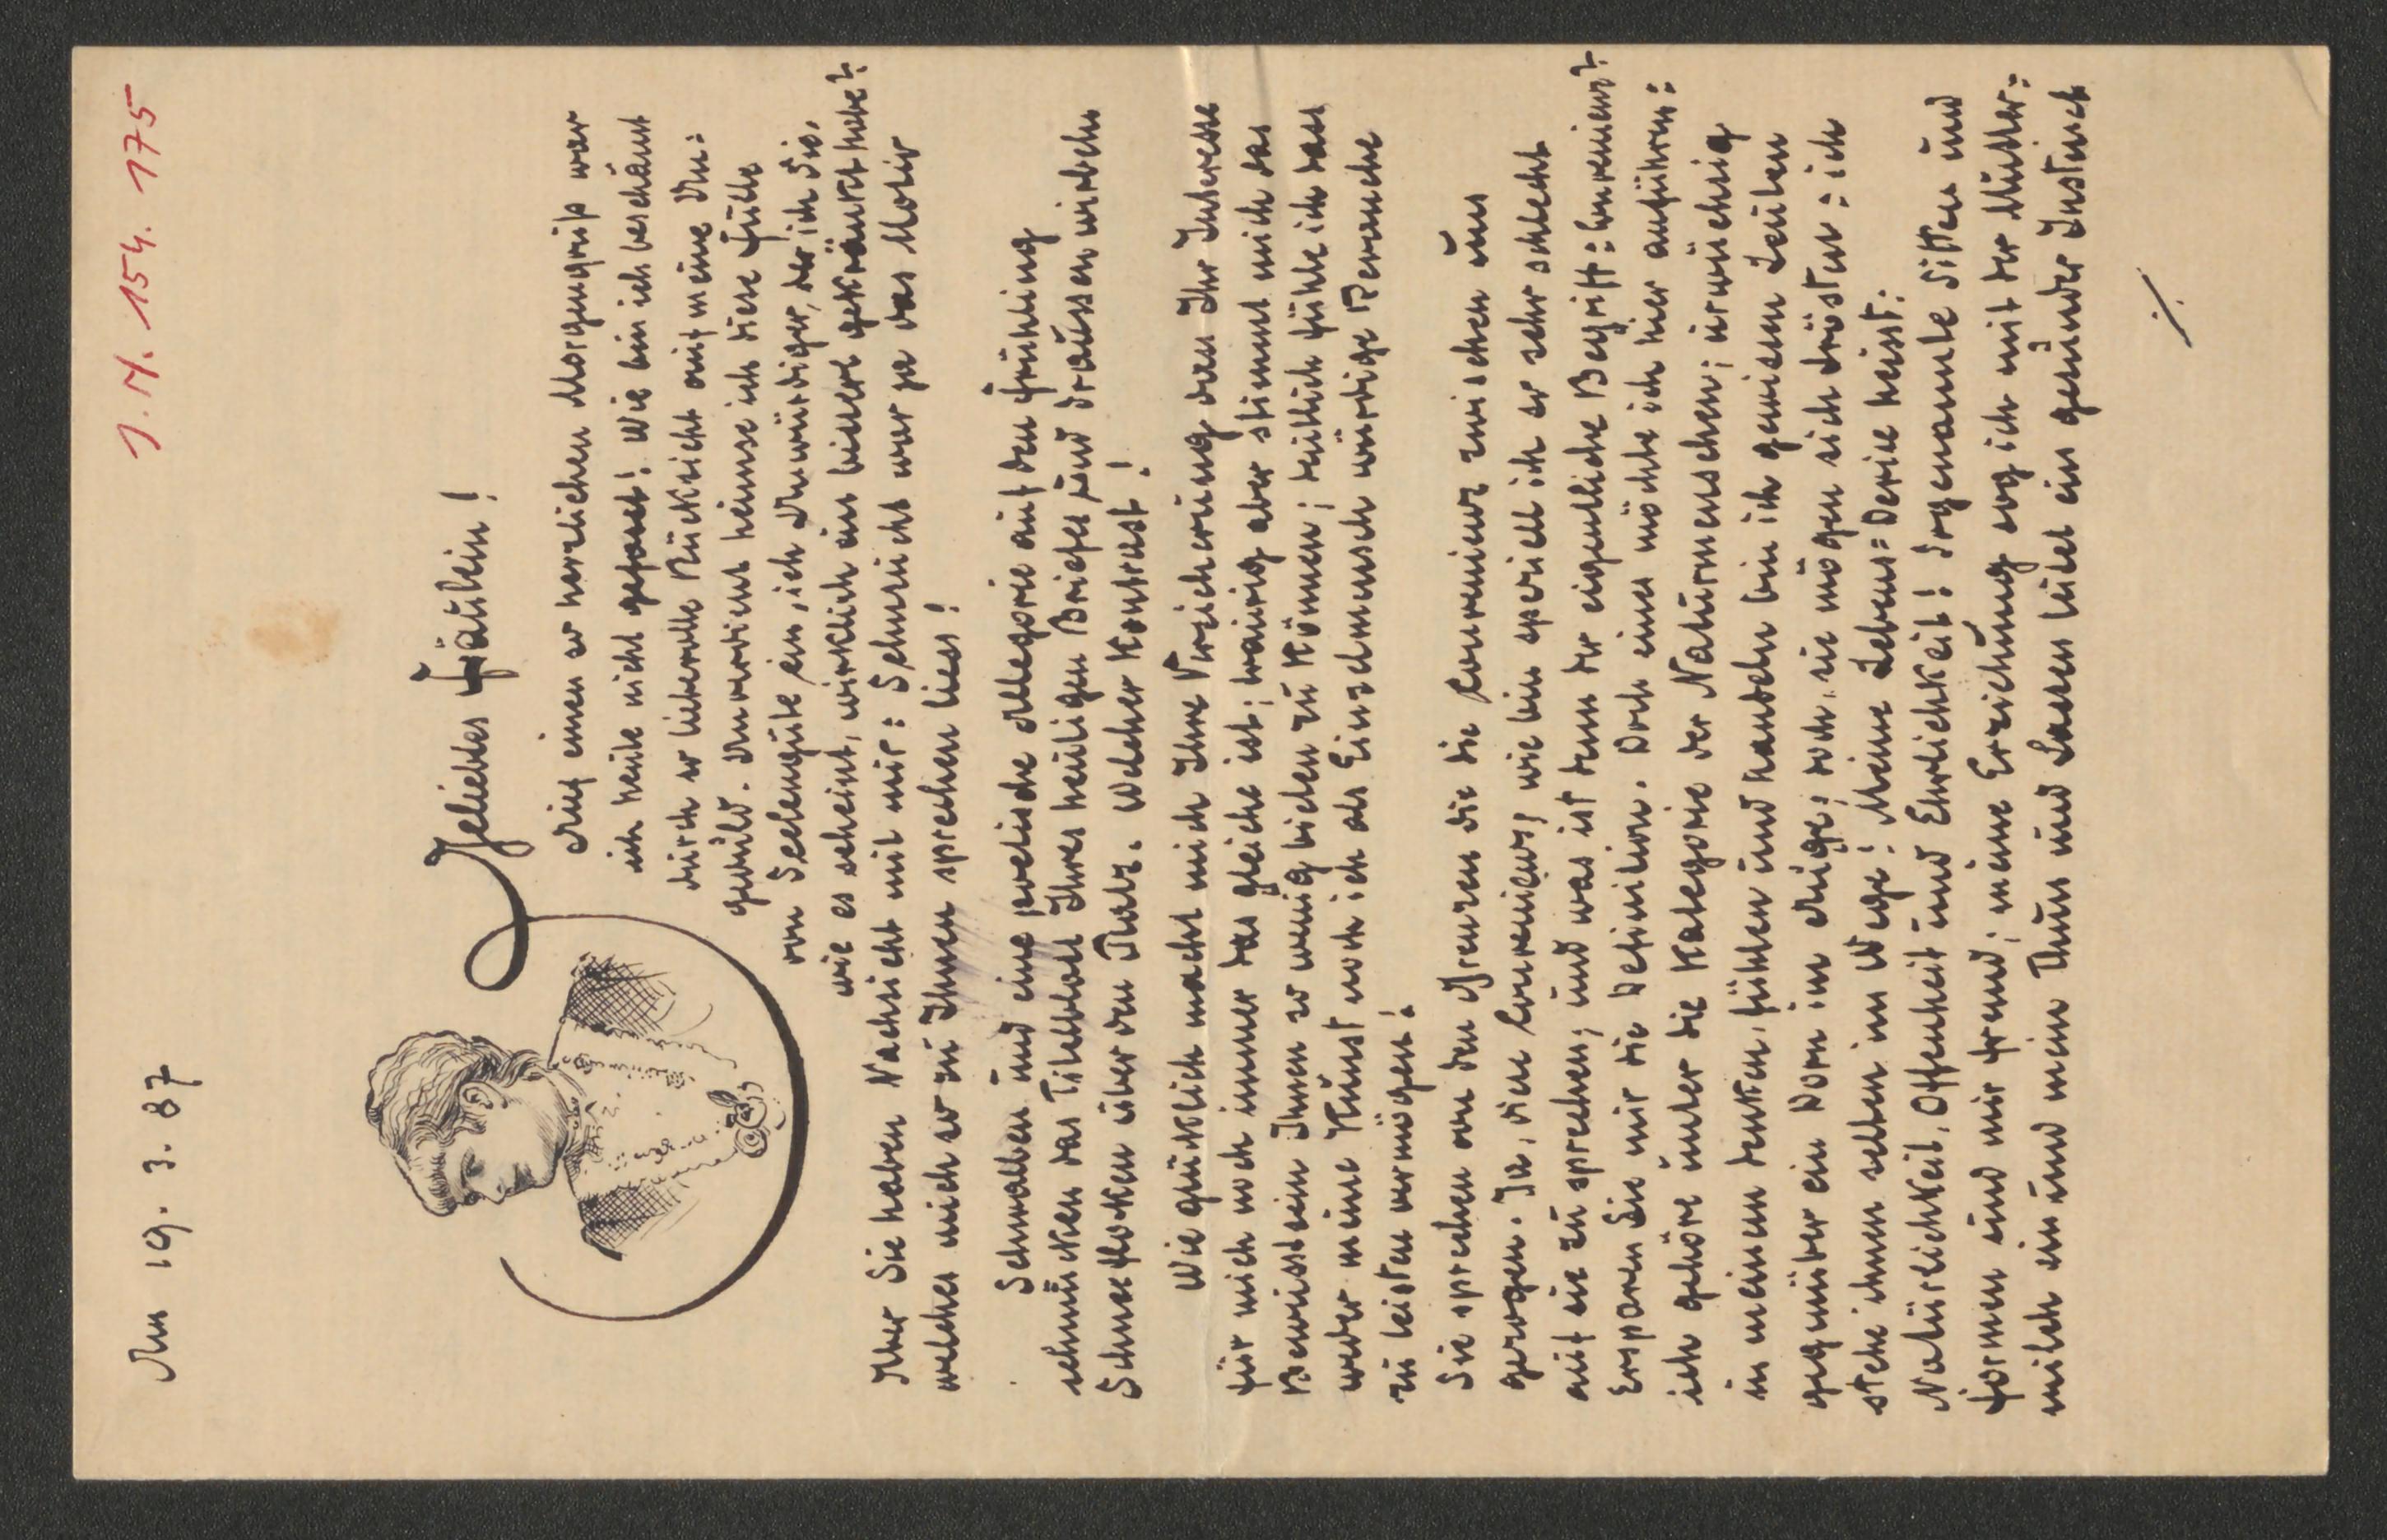 J. N. 154. 175
Am 19. 3. 87
Geliebtes Fräulein!
Auf einen so herzlichen Morgengruß war
ich heute nicht gefasst! Wie bin ich beschämt
durch so liebevolle Rücksicht auf meine Un=
geduld. Unverdient heimse ich diese Fülle
von Seelengüte ein, ich Unwürdiger, der ich Sie,
wie es scheint, wirklich ein bisserl gekränkt habe?
Aber Sie haben Nachsicht mit mir: Sehnsucht war ja das Motiv
welches mich so zu Ihnen sprechen liess!
Schwalben und eine poetische Allegorie auf den Frühling
schmücken das Titelblatt Ihres heutigen Briefes und draussen wirbeln
Schneeflocken über den Platz. Welcher Kontrast!
Wie glücklich macht mich Ihre Versicherung dass Ihr Interesse
für mich noch immer das gleiche ist; traurig aber stimmt mich das
Bewusstsein Ihnen so wenig bieten zu können; deutlich fühle ich dass
weder meine Kunst noch ich als Einzelmensch würdige Revanche
zu leisten vermögen!
Sie sprechen von den Grenzen die die Convenienz zwischen uns
gezogen. Ja, diese Convenienz, wie bin speciell ich so sehr schlecht
auf sie zu sprechen; und was ist denn der eigentliche Begriff: Convenienz?
Ersparen Sie mir die Definition. Doch eines möchte ich hier anführen:
ich gehöre unter die Kategorie der Naturmenschen; urwüchsig
in meinem denken, fühlen und handeln bin ich gewissen Leuten
gegenüber ein Dorn im Auge; doch, sie mögen sich trösten: ich
stehe ihnen selten im Wege! Meine Lebens=Devise heisst:
Natürlichkeit, Offenheit und Ehrlichkeit! Sogenannte Sitten und
Formen sind mir fremd; meine Erziehung sog ich mit der Mutter=
milch ein und mein Thun und Lassen leitet ein gesunder Instinct
./.